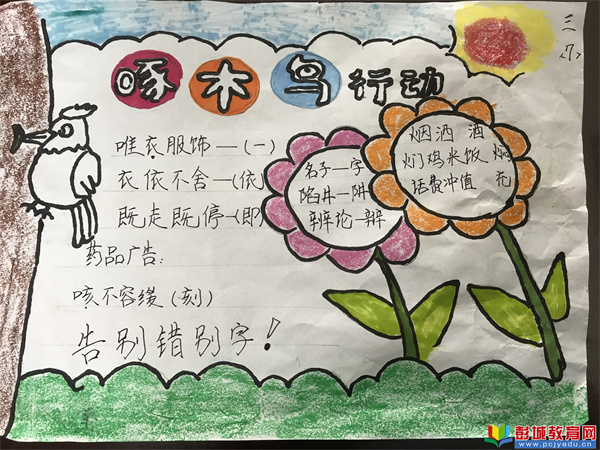 三
〈7〉
啄木鸟行动
唯衣服饰—(一)
衣依不舍—(依)
既走既停—(即)
药品广告:
咳不容缓(刻)
告别错别字!
名子—字
陷井—阱
辩论—辩
烟洒 酒
们鸡米饭 焖
话费冲值 充
彭城教育网
www.pcjyedu.com